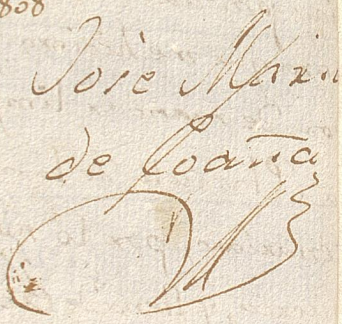 808
Josè Maria
de Loaña